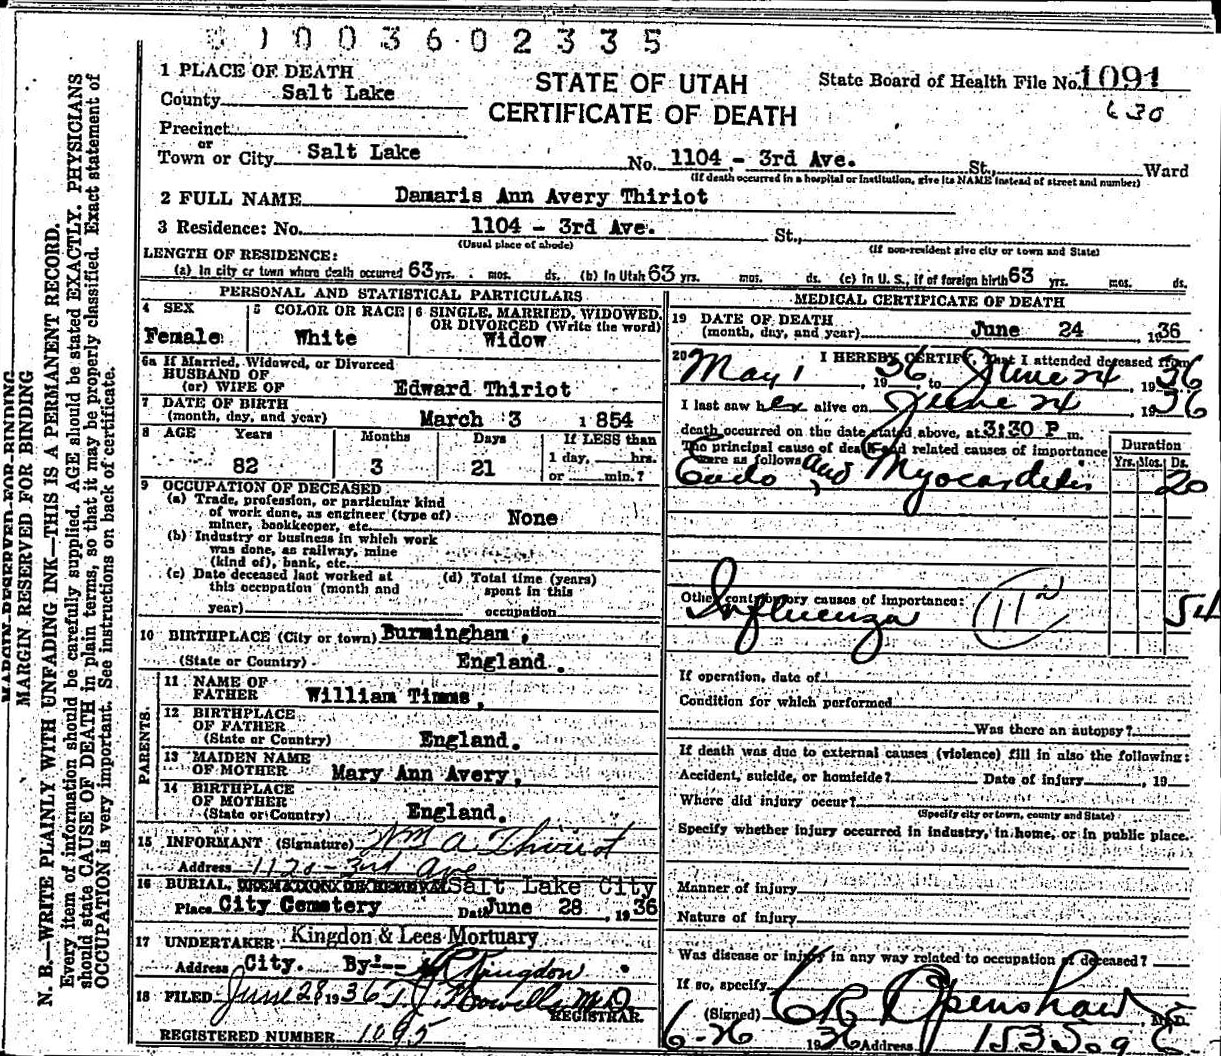 1003602335
1 PLACE OF DEATH
County Salt Lake
Precinct
or
Town or City Salt Lake No. 1104 - 3rd Ave. St., Ward
(If death occurred in a hospital or institution, give its NAME instead of street and number)
STATE OF UTAH
CERTIFICATE OF DEATH
State Board of Health File No. 1091
630
2 FULL NAME Damaris Ann Avery Thiriot
3 Residence: No. 1104 - 3rd Ave. St.,
(Usual place of abode) (If non-resident give city or town and State)
LENGTH OF RESIDENCE:
(a) In city or town where death occurred 63 yrs. mos. ds. (b) In Utah 63 yrs. mos. ds. (c) In U. S., if of foreign birth 63 yrs. mos. ds.
PERSONAL AND STATISTICAL PARTICULARS
4 SEX Female
5 COLOR OR RACE White
6 SINGLE, MARRIED, WIDOWED, OR DIVORCED (Write the word) Widow
6a If Married, Widowed, or Divorced
HUSBAND OF
(or) WIFE OF Edward Thiriot
7 DATE OF BIRTH
(month, day, and year) March 3 1854
8 AGE Years Months Days If LESS than
82 3 21 1 day, hrs.
or min.?
9 OCCUPATION OF DECEASED
(a) Trade, profession, or particular kind
of work done, as engineer (type of)
miner, bookkeeper, etc. None
(b) Industry or business in which work
was done, as railway, mine
(kind of), bank, etc.
(c) Date deceased last worked at
this occupation (month and
year)
(d) Total time (years)
spent in this
occupation
10 BIRTHPLACE (City or town) Burmingham,
(State or Country) England.
PARENTS.
11 NAME OF
FATHER William Timms,
12 BIRTHPLACE
OF FATHER
(State or Country) England.
13 MAIDEN NAME
OF MOTHER Mary Ann Avery,
14 BIRTHPLACE
OF MOTHER
(State or Country) England.
15 INFORMANT (Signature) Wm A Thiriot
Address 1120 - 3rd Ave
16 BURIAL, Salt Lake City
Place City Cemetery Date June 28, 1936
17 UNDERTAKER Kingdon & Lees Mortuary
Address City. By:-- Kingdon
18 FILED June 28 1936 T. J. Howells M.D
REGISTRAR.
REGISTERED NUMBER 1095
MEDICAL CERTIFICATE OF DEATH
19 DATE OF DEATH
(month, day, and year) June 24, 1936
20 I HEREBY CERTIFY, That I attended deceased from
May 1, 1936 to June 24, 1936
I last saw her alive on June 24, 1936
death occurred on the date stated above, at 3:30 P m.
The principal cause of death and related causes of importance
were as follows:
Duration
Yrs. Mos. Ds.
Endo and Myocarditis 20
Other contributory causes of importance:
Influenza 11 54
If operation, date of
Condition for which performed
Was there an autopsy?
If death was due to external causes (violence) fill in also the following:
Accident, suicide, or homicide? Date of injury, 19
Where did injury occur?
(Specify city or town, county and State)
Specify whether injury occurred in industry, in home, or in public place.
Manner of injury
Nature of injury
Was disease or injury in any way related to occupation of deceased?
If so, specify
(Signed) C R Openshaw, M.D.
6-26 1936 Address 1535 So 9 E.
MARGIN RESERVED FOR BINDING
MARGIN RESERVED FOR BINDING
N. B.—WRITE PLAINLY WITH UNFADING INK—THIS IS A PERMANENT RECORD.
Every item of information should be carefully supplied. AGE should be stated EXACTLY. PHYSICIANS
should state CAUSE OF DEATH in plain terms, so that it may be properly classified. Exact statement of
OCCUPATION is very important. See instructions on back of certificate.